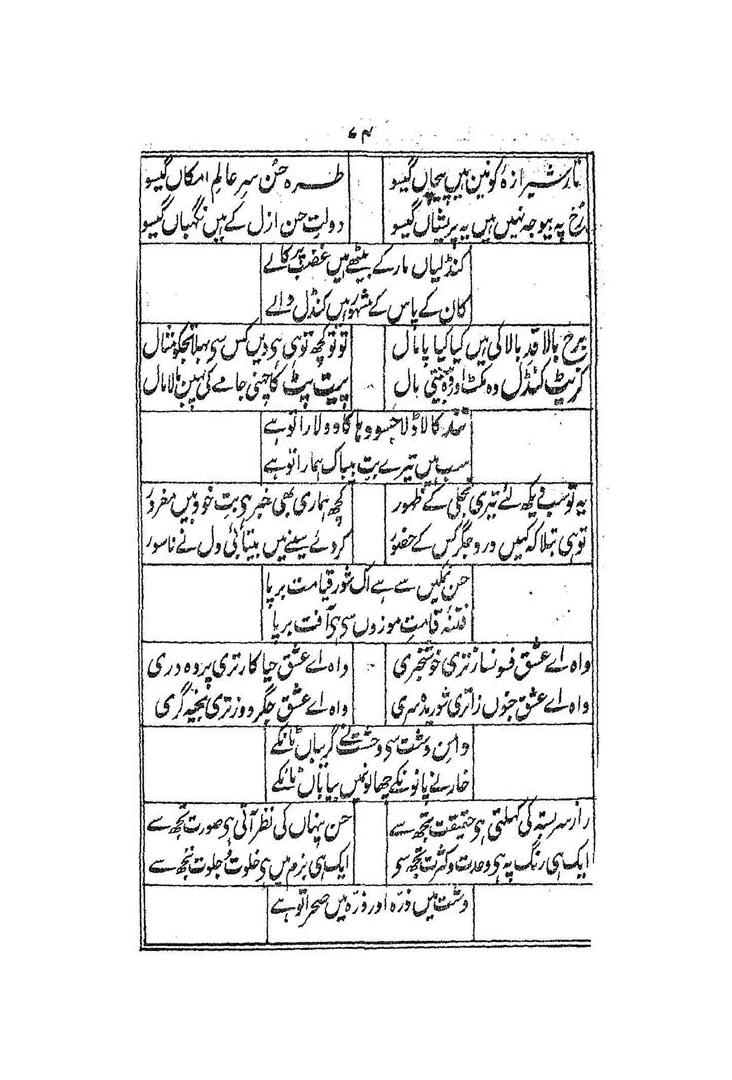 ۶۴
تار شیرازہ کونین ہیں پیچاں گیسو
طرہ حسن سرِ عالم امکاں گیسو
رُخ پہ بیوجہ نہیں ہیں یہ پریشاں گیسو
دولتِ حسن ازل کے ہیں نگہباں گیسو
کنڈلیاں مار کے بیٹھے ہیں غضب پرکالے
کان کے پاس کے مشہور ہیں کنڈل والے
برج بالا قدِ بالا کی ہیں کیا کیا پامال
تو تو کچھ توہی ہی دیں کس سی بھلا تجکو مثال
کریٹ کنڈل وہ مکٹ اور وہ بال
پیت پٹ کا چنی جامے کی نہیں بالا مال
نند کا لاڈلا جسودہا کا وولارا تو ہے
سب ہیں تیرے بت بیباک ہمارا تو ہے
یہ تو سب دیکھ لئے تیری تجلی کے ظہور
کچھ ہماری بھی خبر ہی بتِ خود بیں مغرور
توہی بتلا کہ کہیں درد جگر کس کے حضور
کر دئے سینے میں بیتابئی دل نے ناسور
حسن نمکیں سے ہے اک شور قیامت برپا
فتنۂ قامتِ موزوں سی ہی آفت برپا
واہ اے عشق فسوں ساز تری خوش خبری
واہ اے عشق حیا کار تری پردہ دری
واہ اے عشق جنوں زا تری شوریدہ سری
واہ اے عشق جگر دوز تری بخیہ گری
دامن دشت سی وحشت نے گریباں ٹانکے
خار نے پانو نکے چھالو نمیں بیاباں ٹانکے
راز سربستہ کی کھلتی ہی حقیقت تجھ سے
حسن پنہاں کی نظر آتی ہی صورت تجھ سے
ایک ہی رنگ پہ ہی وحدت و کثرت تجھ سی
ایک ہی بزم میں ہی خلوت و جلوت تجھ سے
دشت میں ذرہ اور ذرہ میں صحرا تو ہے